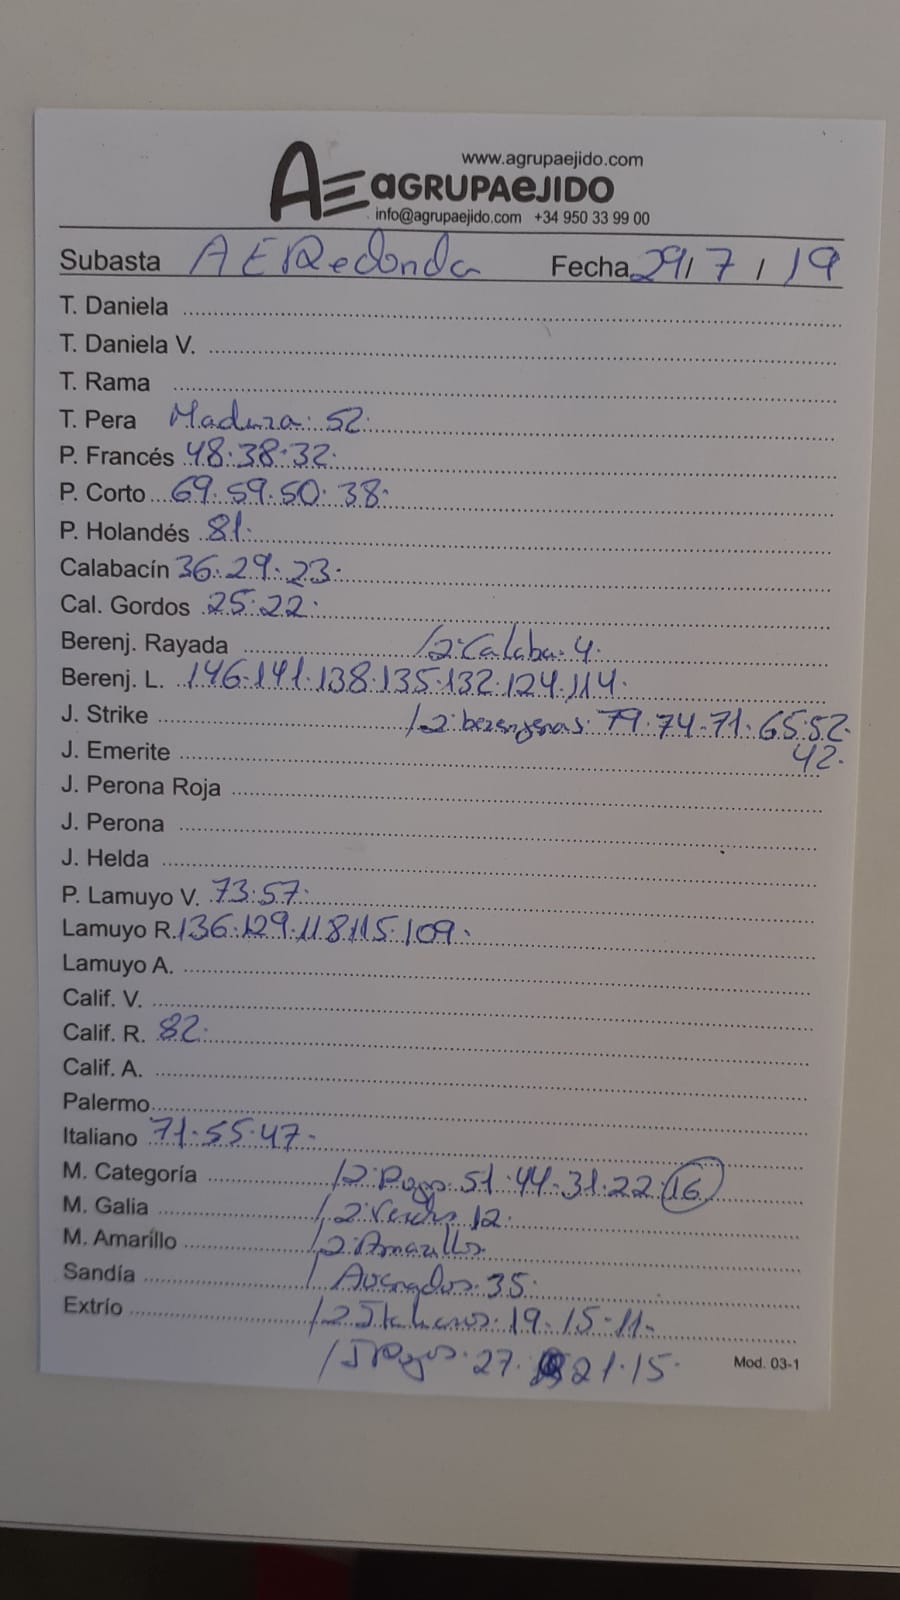 www.agrupaejido.com
AE aGRUPAeJIDO
info@agrupaejido.com +34 950 33 99 00
Subasta AERedonda Fecha 29/ 7 / 19
T. Daniela
T. Daniela V.
T. Rama
T. Pera Madura. 52.
P. Francés 48.38.32.
P. Corto 69.59.50.38.
P. Holandés 81.
Calabacín 36.29.23.
Cal. Gordos 25.22.
Berenj. Rayada /2.Calaba.4.
Berenj. L. 146.141.138.135.132.124.114.
J. Strike /2.berenjenas. 79.74.71.65.52.
J. Emerite 42.
J. Perona Roja
J. Perona
J. Helda
P. Lamuyo V. 73.57.
Lamuyo R. 136.129.118.115.109.
Lamuyo A.
Calif. V.
Calif. R. 82.
Calif. A.
Palermo
Italiano 71.55.47.
M. Categoría /2. 51.44.31.22.16
M. Galia /2.Verdes 12.
M. Amarillo /2.Amarillo.
Sandía / 35.
Extrío /2 Italianos. 19.15.11.
/ 27. 21.15.
Mod. 03-1